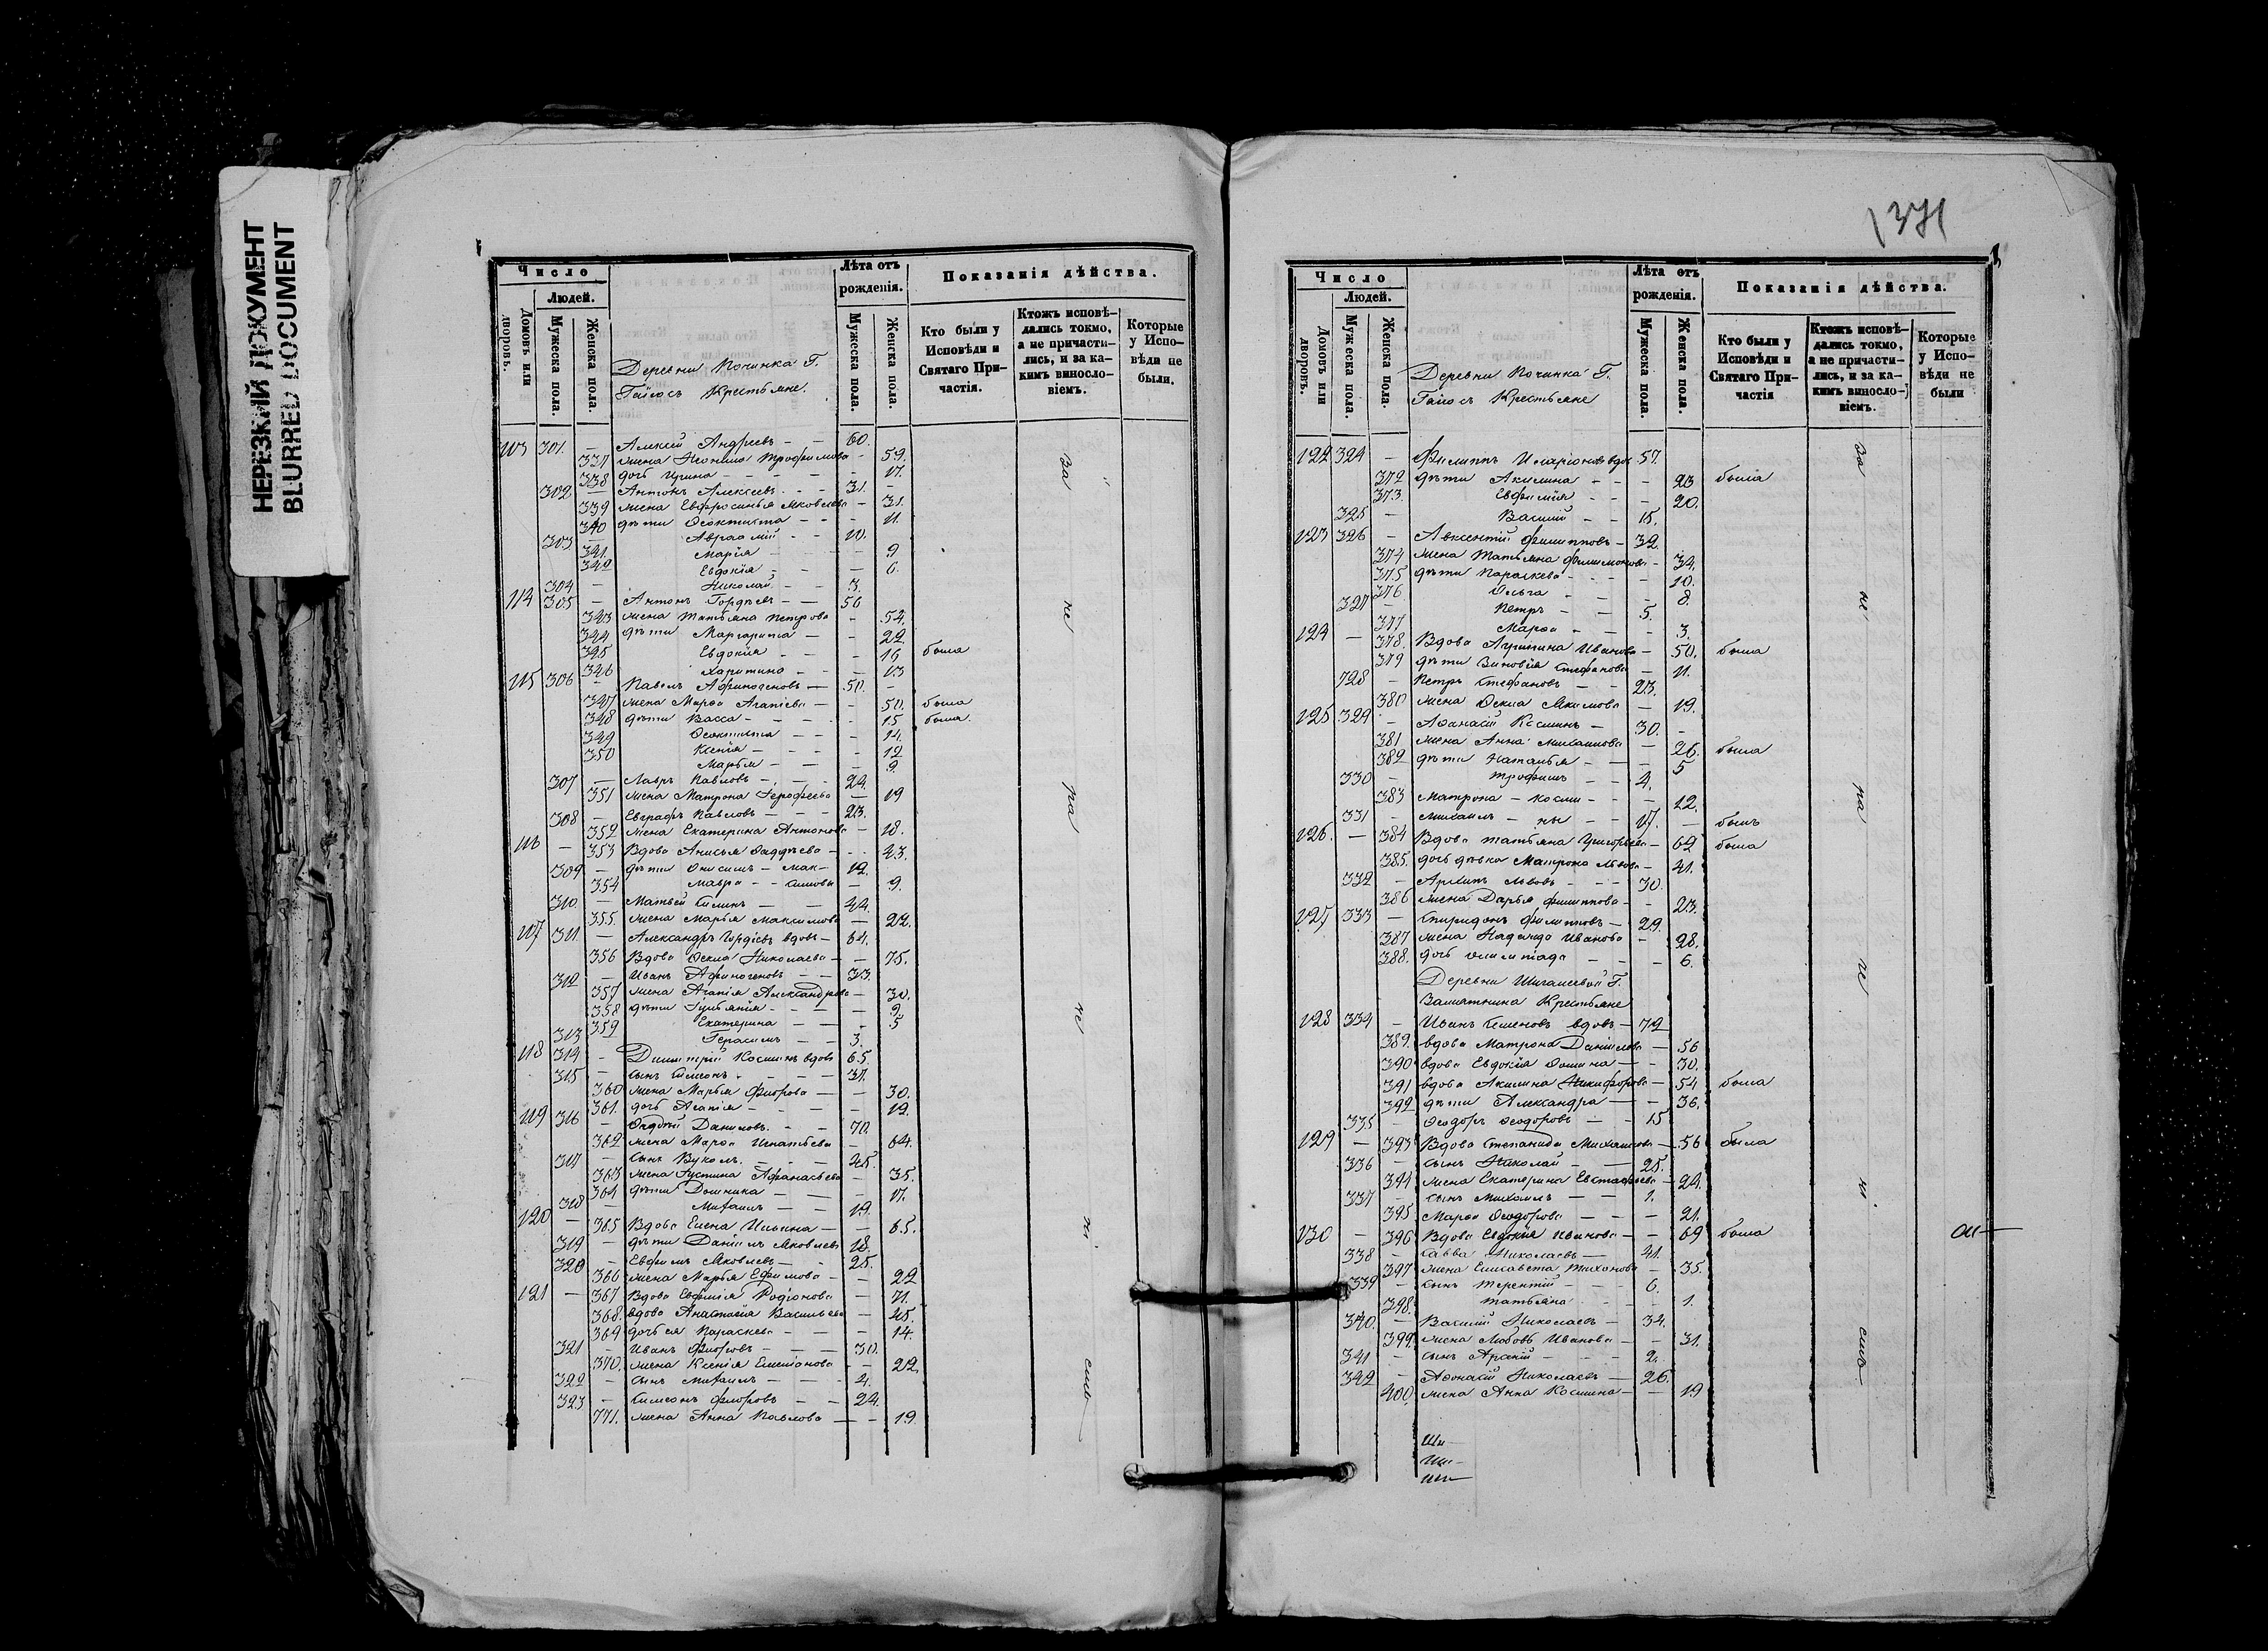 НЕРЕЗКИЙ ДОКУМЕНТ
BLURRED DOCUMENT
Число
Людей.
Домовъ или дворовъ.
Мужеска пола.
Женска пола.
Деревни Починка Г.
Крестьяне.
Лѣта отъ рожденія.
Мужеска пола.
Женска пола.
Показанія дѣйства.
Кто были у Исповѣди и Святаго Причастія.
Ктожъ исповѣдались токмо, а не причастились, и за какимъ винословіемъ.
Которые у Исповѣди не были.
113 301. — Алексѣй Андреевъ — 60.
337 жена Неонила Трофимова — 59.
338 дочь Ирина — 17.
302 — Антонъ Алексѣевъ — 31.
339 жена Евфросинья Яковлева — 31.
340 дѣти Ѳеоктиста — 11.
303 — Авраамій — 10.
341. Марія — 9
342 Евдокія — 6.
304 — Николай — 3.
114 305 — Антонъ Гордѣевъ — 56
343 жена Татьяна Петрова — 54.
344 дѣти Маргарита — 22
345 Евдокія — 16 была
346 Харитина — 13
115 306 — Павелъ Афиногеновъ — 50.
347 жена Марѳа Агапіева — 50. была
348 дѣти Васса — 15 была.
349 Ѳеоктиста — 14.
350 Ксенія — 12
Марья — 9.
307 — Лавръ Павловъ — 24.
351 жена Матрона Ерофеева — 19
308 — Евграфъ Павловъ — 23.
352 жена Екатерина Антонова — 18.
116 — 353 Вдова Анисья Ѳаддѣева — 43.
309 — дѣти Онисимъ — Мак- 12.
354 Мавра — симовы — 9.
310 — Матвѣй — 44.
355 жена Марья Максимова — 22.
117 311 — Александръ Гордіевъ вдовъ — 64.
356 Вдова Ѳекла Николаева — 75.
312 — Иванъ Афиногеновъ — 33.
357 жена Агапія Александрова — 30.
358 дѣти — 9.
359 Екатерина — 5
313 Герасимъ — 3.
118 314 — Димитрій Косминъ вдовъ 65
315 — сынъ Симеонъ — 31.
360 жена Марья Флорова — 30.
361. дочь Агапія — 12.
119 316 — Даниловъ — 70.
362 жена Марѳа Игнатьева — 64.
317 — сынъ Вуколъ — 45.
363 жена Іустина Афанасьева — 35.
364 дѣти Домника — 17.
318 Михаилъ — 19.
120 — 365 Вдова Елена Ильина — 65.
319 — дѣти Даніилъ Яковлевъ 18.
320 — Евфимъ Яковлевъ — 25.
366 жена Марья Ефимова — 22
121 — 367 Вдова Евфимія Родіонова — 71.
368. вдова Анастасія Васильева — 45.
369 дочь ея Параскева — 14.
321 — Иванъ Флоровъ — 30.
370. жена Ксенія Емеліанова — 22
322 — сынъ Михаилъ — 4.
323 — Симеонъ Флоровъ — 24.
771. жена Анна Павлова — 19.
за не ра
371
Число
Людей.
Домовъ или дворовъ.
Мужеска пола.
Женска пола.
Деревни Починка Г.
Крестьяне
Лѣта отъ рожденія.
Мужеска пола.
Женска пола.
Показанія дѣйства.
Кто были у Исповѣди и Святаго Причастія
Ктожъ исповѣдались токмо, а не причастились, и за какимъ винословіемъ.
Которые у Исповѣди не были
122 324 — Филиппъ Иларіоновъ вдов. 57.
372 дѣти Акилина — 23 была
373. Евфимія — 20.
325 — Василій — 15.
123 326 — Авксентій Филипповъ — 32.
374 жена Татьяна Филимонова — 34.
375 дѣти Параскева — 10.
376 Ольга — 8.
327 — Петръ — 5.
377 Марѳа — 3.
124 — 378. Вдова Агрипина Иванова — 50. была
379 дѣти Зиновія Стефанова — 11.
728 — Петръ Стефановъ — 23.
380 жена Ѳекла Акимова — 19.
125 329 — Аѳанасій Косминъ — 30.
381 жена Анна Михаилова — 26. была
382 дѣти Наталья — 5
330 — Трофимъ — 4.
383 Матрона — Косми- — 12.
331 — Михаилъ — ны — 17. — былъ
126. — 384 Вдова Татьяна Григорьева — 62 была
385. дочь дѣвка Матрона Львова — 41.
332 — Архипъ Львовъ — 30.
386 жена Дарья Филиппова — 23.
127 333 — Спиридонъ Филипповъ — 29.
387 жена Надежда Иванова — 28.
388. дочь Олимпіада — 6.
Деревни Шигалеевой Г.
Крестьяне
128 334 — Иванъ Семеновъ вдовъ — 72
389. вдова Матрона Даніилова — 56
390 вдова Евдокія Ѳомина — 30.
391 вдова Акилина Никифорова — 54 была
392 дѣти Александра — 36.
335 — Ѳеодоръ Ѳеодоровъ — 15
129 — 393 Вдова Степанида Михаилова — 56 была
336 — сынъ Николай — 25.
394 жена Екатерина Евстафьева — 24.
337 — сынъ Михаилъ — 1.
395 Марѳа Ѳеодорова — 21.
130 — 396 Вдова Евдокія Иванова — 69 была
338 — Савва Николаевъ — 41.
397 жена Елисавета Тихонова — 35.
339 — сынъ Терентій — 6.
398. Татьяна — 1.
340. — Василій Николаевъ — 34.
399. жена Любовь Иванова — 31.
341 — сынъ Арсеній — 2.
342 — Аѳонасій Николаевъ — 26.
400. жена Анна Космина — 19
за не ра
Ши—
Ши—